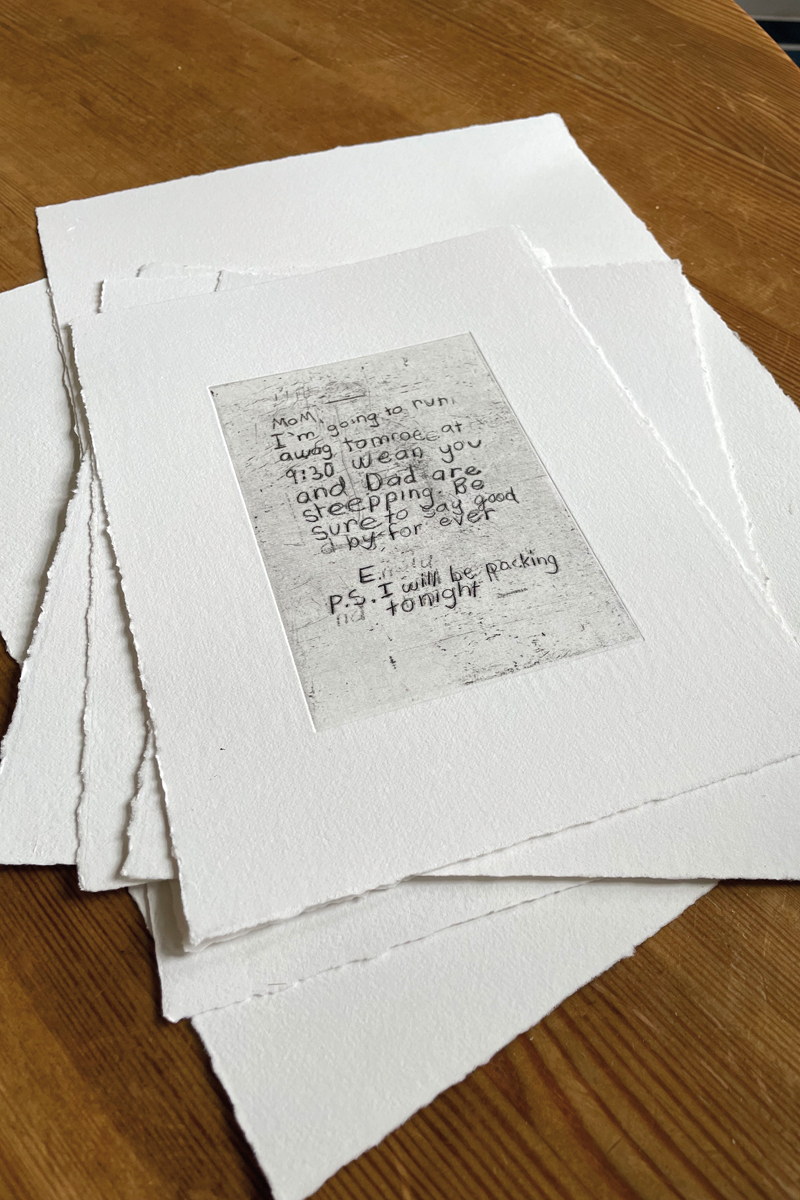 MoM,
I'm going to run
away tomroe at
9:30 wean you
and Dad are
steepping. Be
sure to say good
d by for ever
E.
P.S. I will be packing
tonight